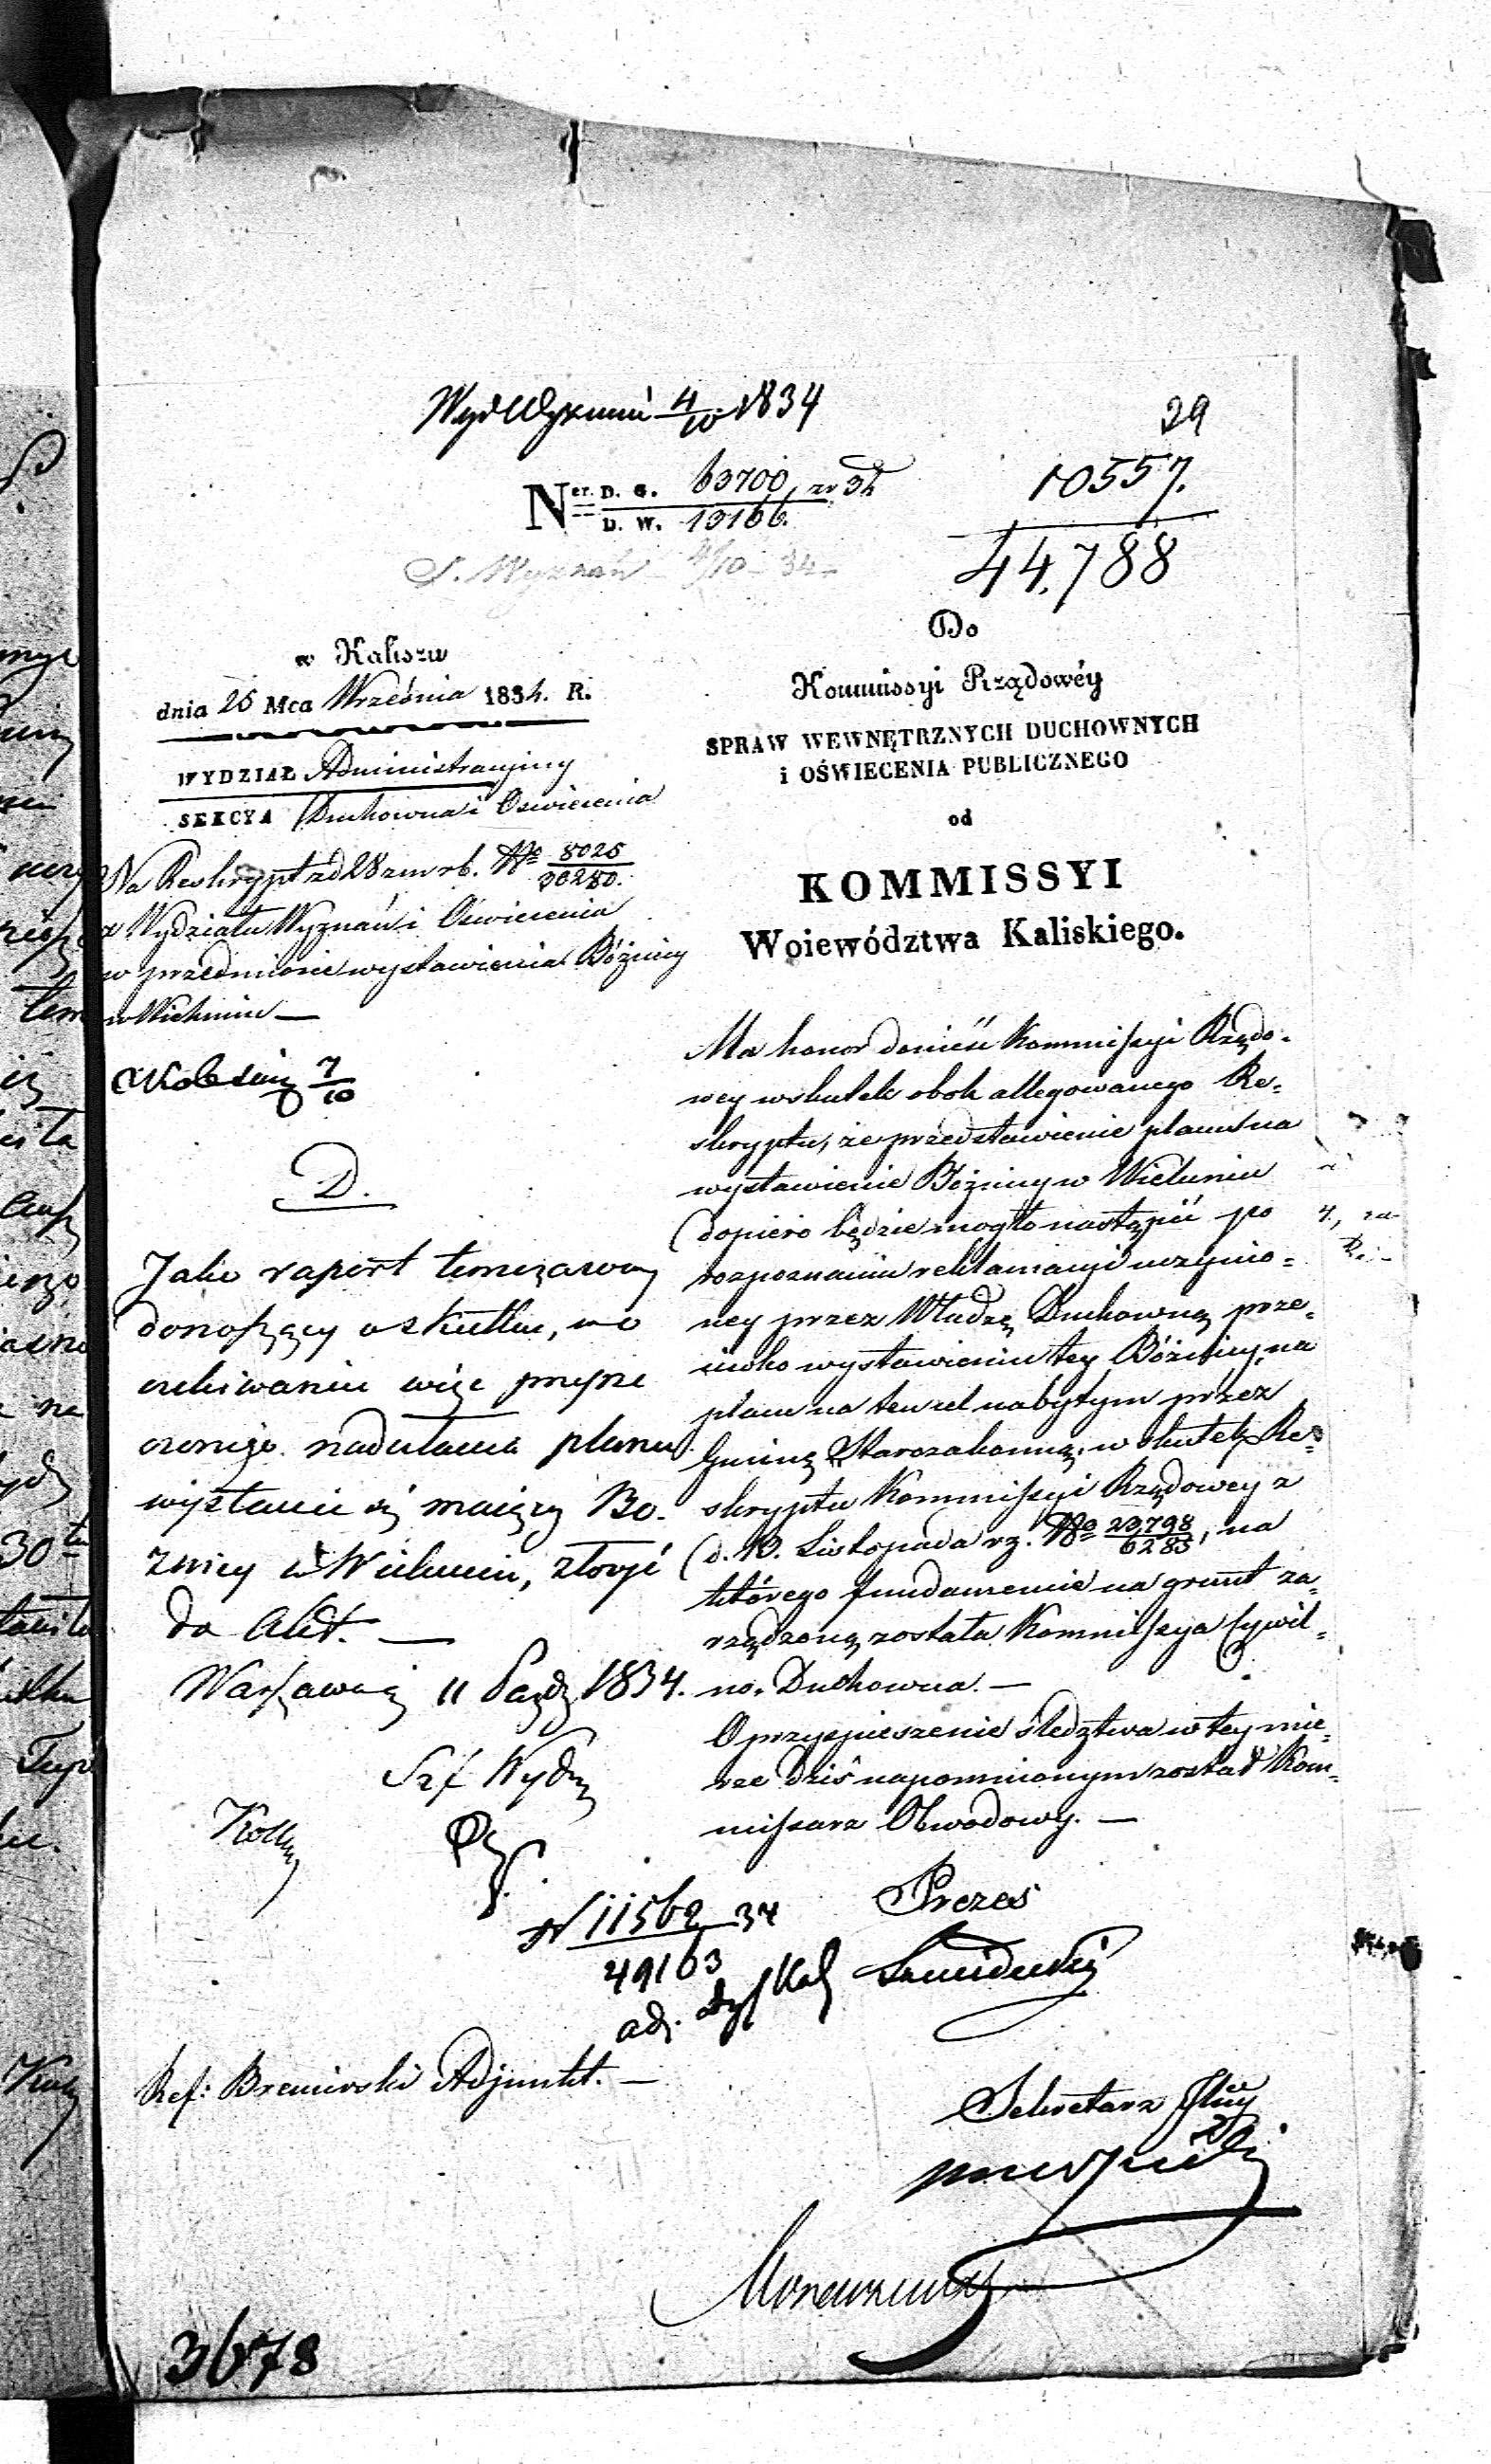 Wyd Wyznań 4/10 1834
29
Ner. D. G. 63700, zr 34
D. W. 13166.
10557.
44,788
S. Wyznań 4/10 - 34 -
w Kaliszu
dnia 25 Mca Września 1834. R.
WYDZIAŁ Administracyiny
SEKCYA Duchowna i Oświecenia
Na Reskrypt z d 28 zm rb. No 8025/36280.
z Wydziału Wyznań i Oświecenia
w przedmiocie wystawienia Bóżnicy
w Wieluniu —
7/10
D.
Jako raport tymczasowy
donoszący o skutku, w
oczekiwaniu więc przyrze
czonego nadesłania planu
wystawić się maiącey Bo-
żnicy w Wieluniu, złożyć
do Akt. —
Warszawa d 11 Paźdz 1834.
Szf Wydz
Do
Kommissyi Rządowéy
SPRAW WEWNĘTRZNYCH DUCHOWNYCH
i OŚWIECENIA PUBLICZNEGO
od
KOMMISSYI
Woiewództwa Kaliskiego.
Ma honor donieść Kommissyi Rządo-
wey wskutek obok allegowanego Re-
skryptu, że przedstawienie planu na
wystawienie Bóżnicy w Wieluniu
dopiero będzie mogło nastąpić po
rozpoznaniu reklamacyi uczynio-
ney przez Władzę Duchowną prze-
ciwko wystawieniu tey Bóżnicy, na
placu na ten cel nabytym przez
Gminę Starozakonną, w skutek Re-
skryptu Kommissyi Rządowey z
d. 10. Listopada rz. No 23,798/6285, na
którego fundamencie na grunt za-
rządzoną została Kommissya Cywil-
no-Duchowna. —
O przyspieszenie śledztwa w tey mie-
rze dziś napomnionym został Kom-
missarz Obwodowy. —
Prezes
N 11562 34
49163
ad.
Ref: Adjunkt. —
Sekretarz Jlny
3678